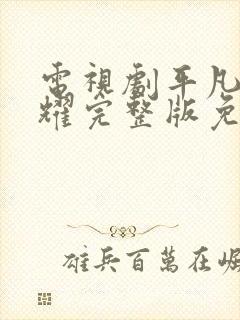 電視劇平凡
耀完整版免
雄兵百萬在崛